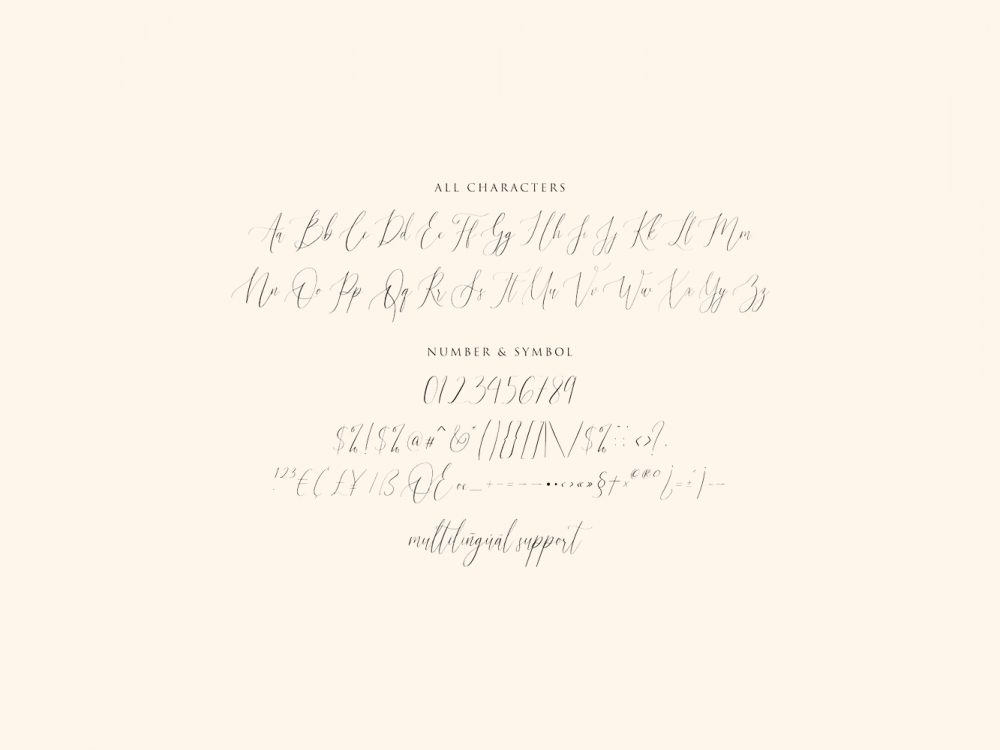 ALL CHARACTERS
Aa Bb Cc Dd Ee Ff Gg Hh Ii Jj Kk Ll Mm
Nn Oo Pp Qq Rr Ss Tt Uu Vv Ww Xx Yy Zz
NUMBER & SYMBOL
0123456789
$%!$%@#^&*()|{}[]/\\/$%:;<>?.
123€¢£¥|ß Œ
multilingual support